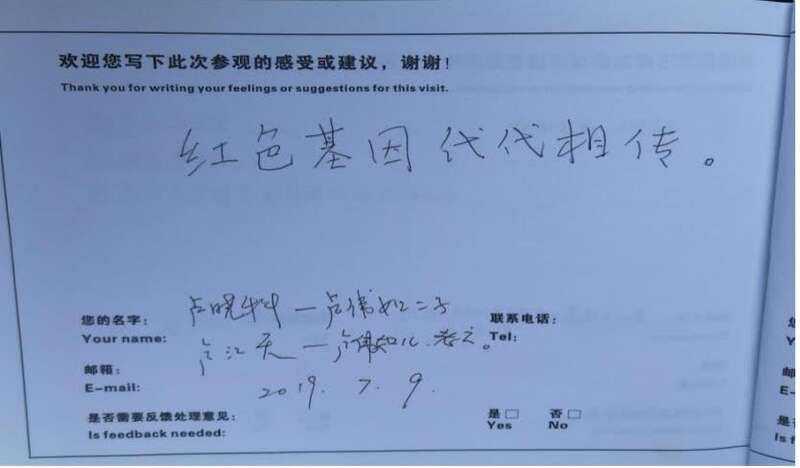 欢迎您写下此次参观的感受或建议，谢谢！
Thank you for writing your feelings or suggestions for this visit.
红色基因代代相传。
您的名字： 卢晓 — 卢伟如二子 联系电话：
Your name: 卢江天 — 卢伟如儿 Tel:
邮箱：
E-mail: 2019. 7. 9.
是否需要反馈处理意见： 是□ 否□
Is feedback needed: Yes No